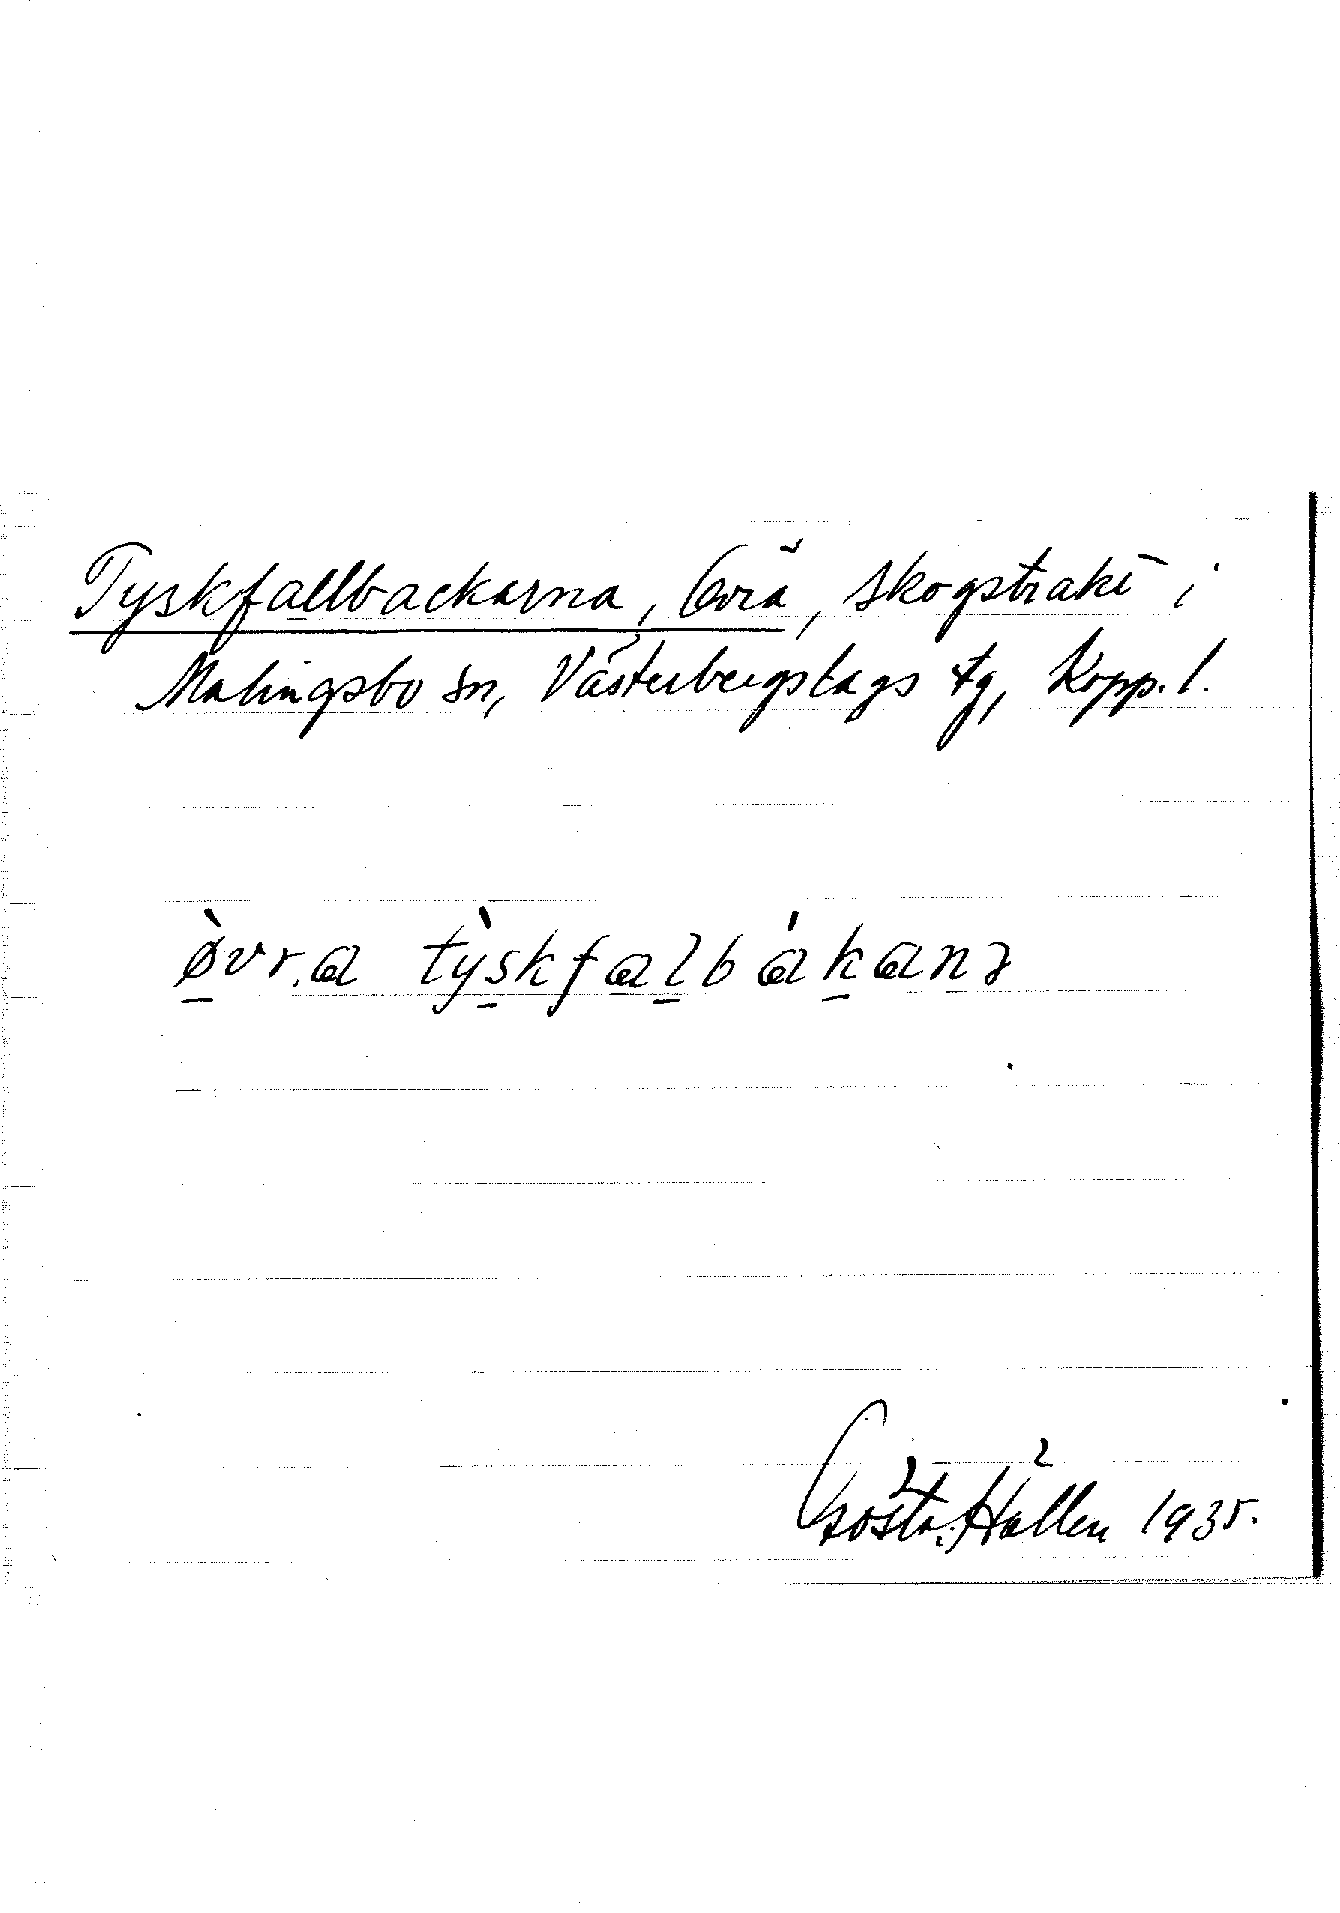 Tyskfallbackarna, Övra, skogstrakt i
Malingsbo sn, Västerbergslags tg, Kopp. l.
ø̀vra tỳskfalbákanə
Gösta Hallen 1935.